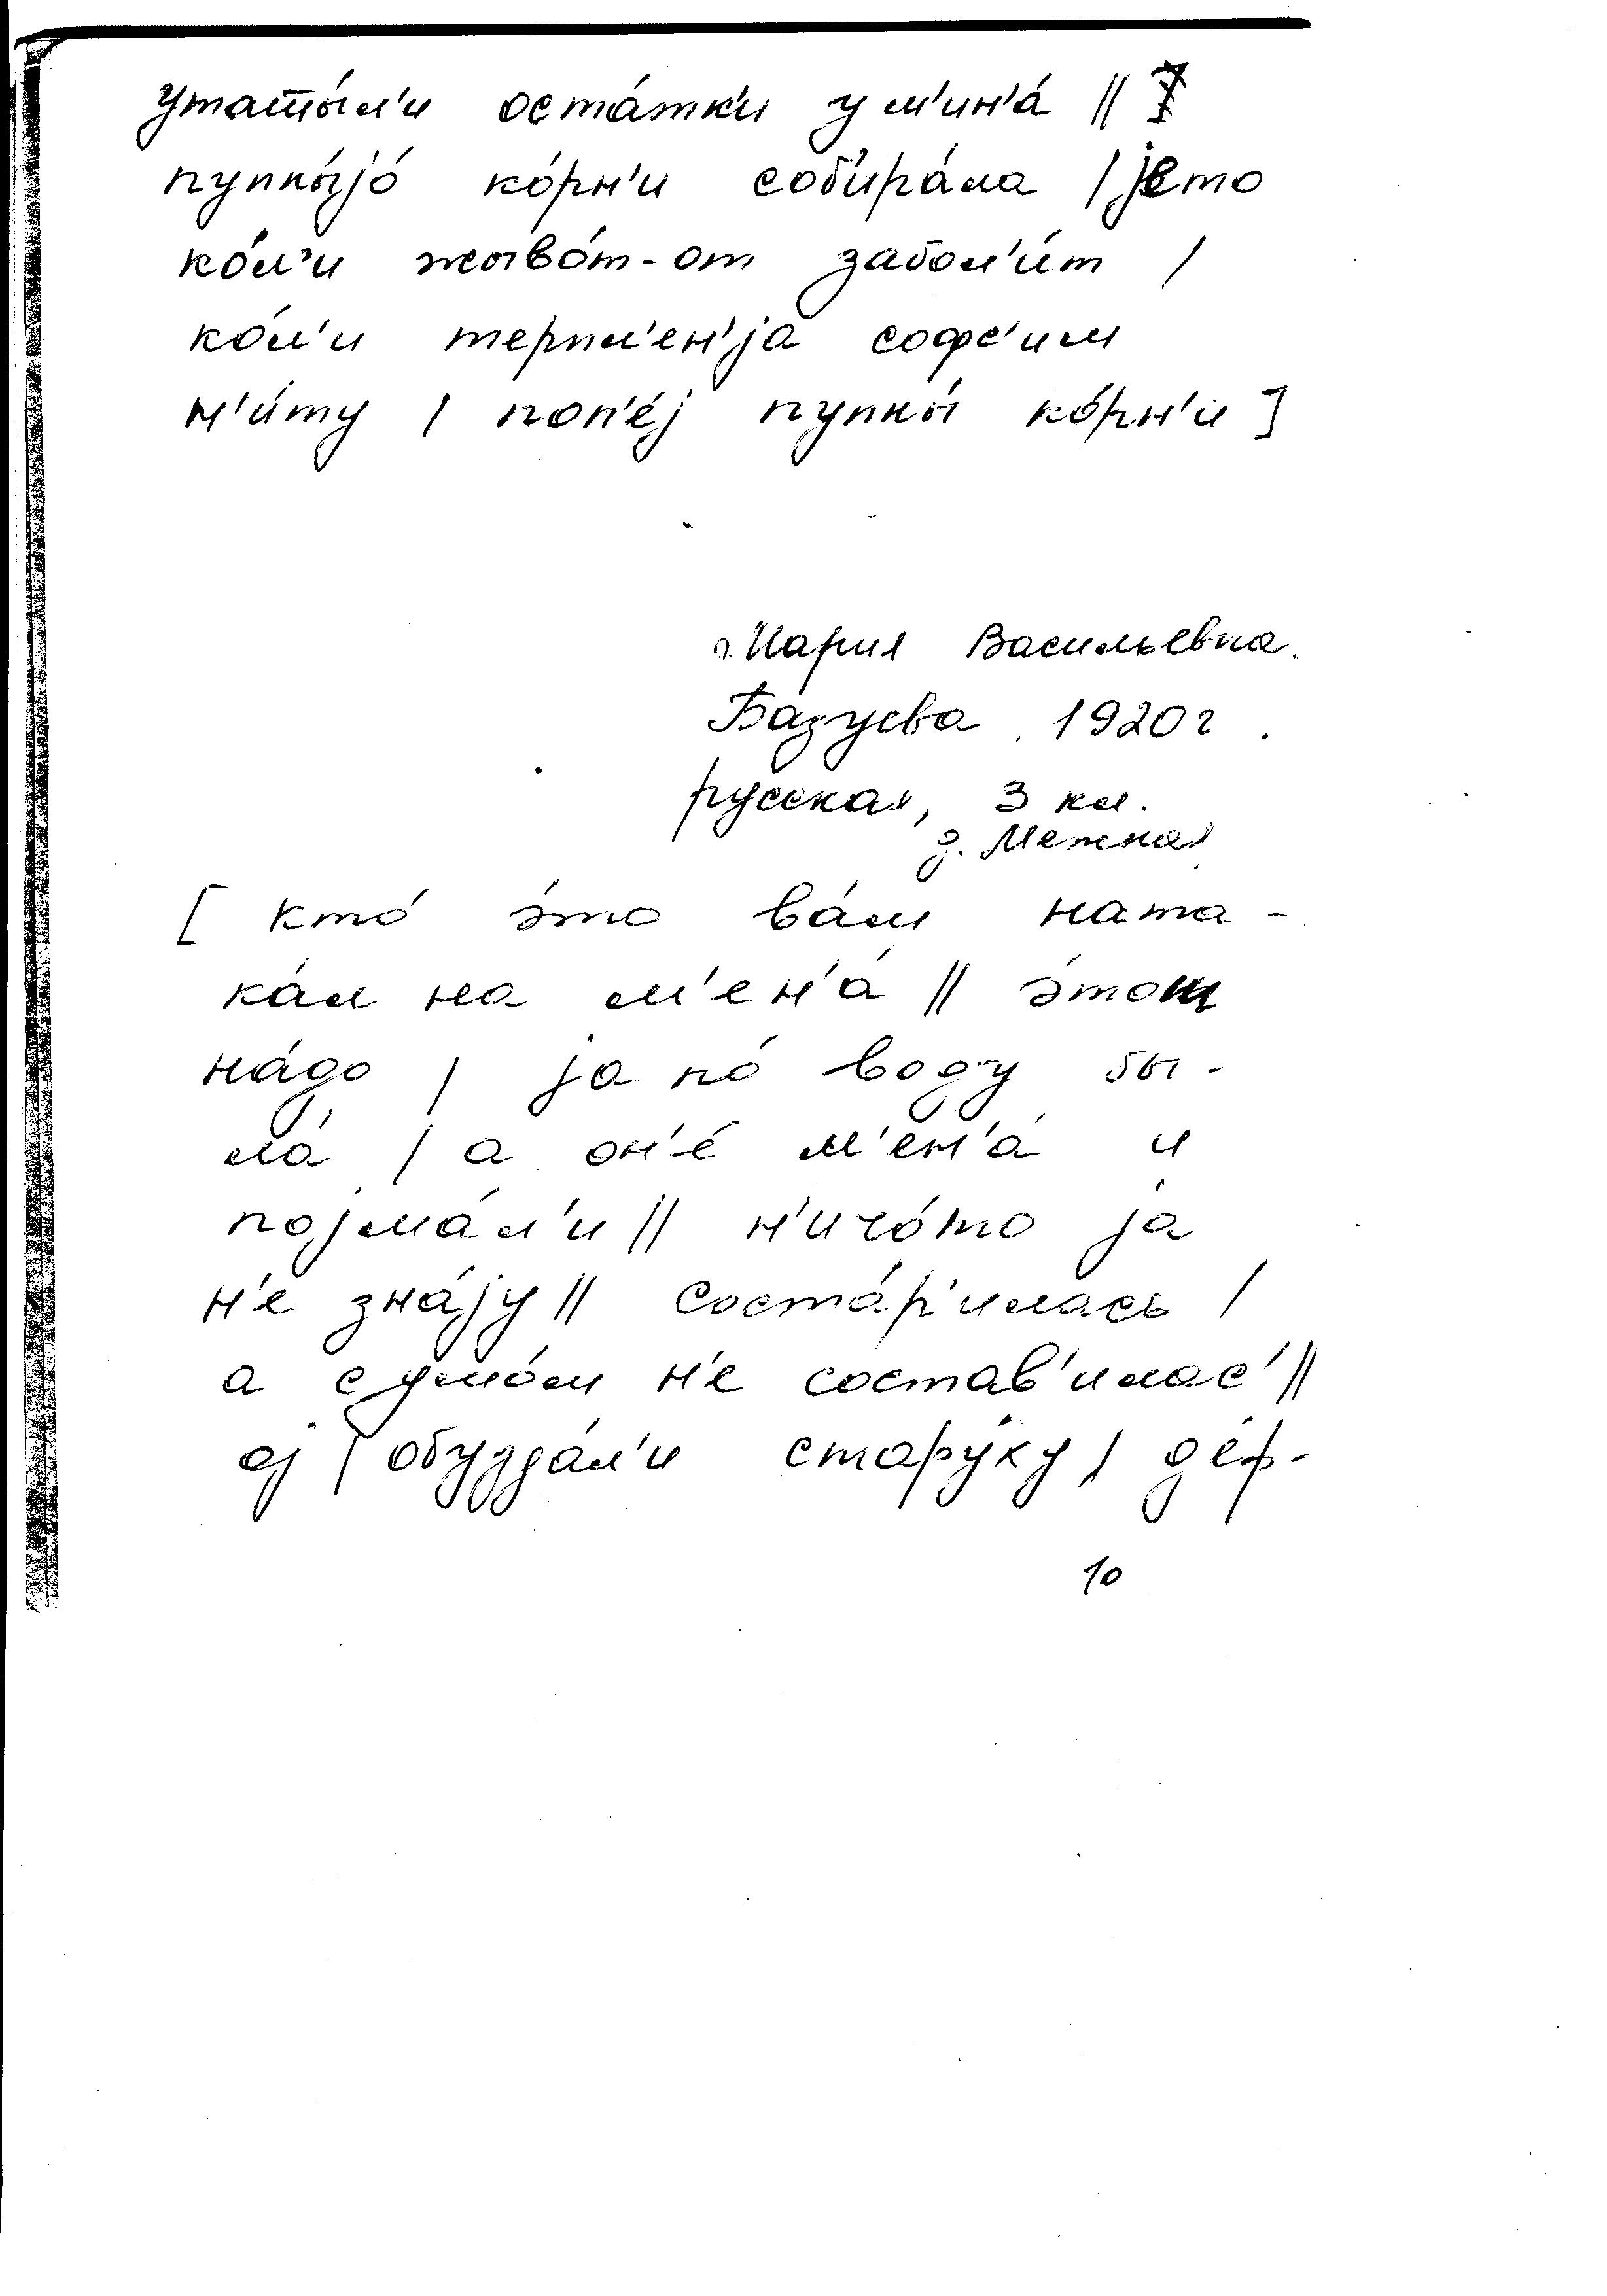 утаты́л'и оста́тк'и у м'ин'а́ ||
пупны́jо ко́рн'и соб'ира́ла | jето
ко́л'и жыво́т-от забол'и́т |
ко́л'и терпл'ен'jа софс'им
н'и́ту | поп'е́j пупны́ ко́рн'и ]
Мария Васильевна.
Базуева. 1920 г.
русская, 3 кл.
д. Межная
[ кто́ э́то ва́м ната-
ка́л на м'ен'а́ || э́тош
на́до | jа по́ воду бы-
ла́ | а он'е́ м'ен'а́ и
поjма́л'и || н'ичо́то jа́
н'е зна́jу || соста́р'илась |
а с умо́м н'е состав'илас' ||
оj | обузда́л'и стару́ху | де́р-
10